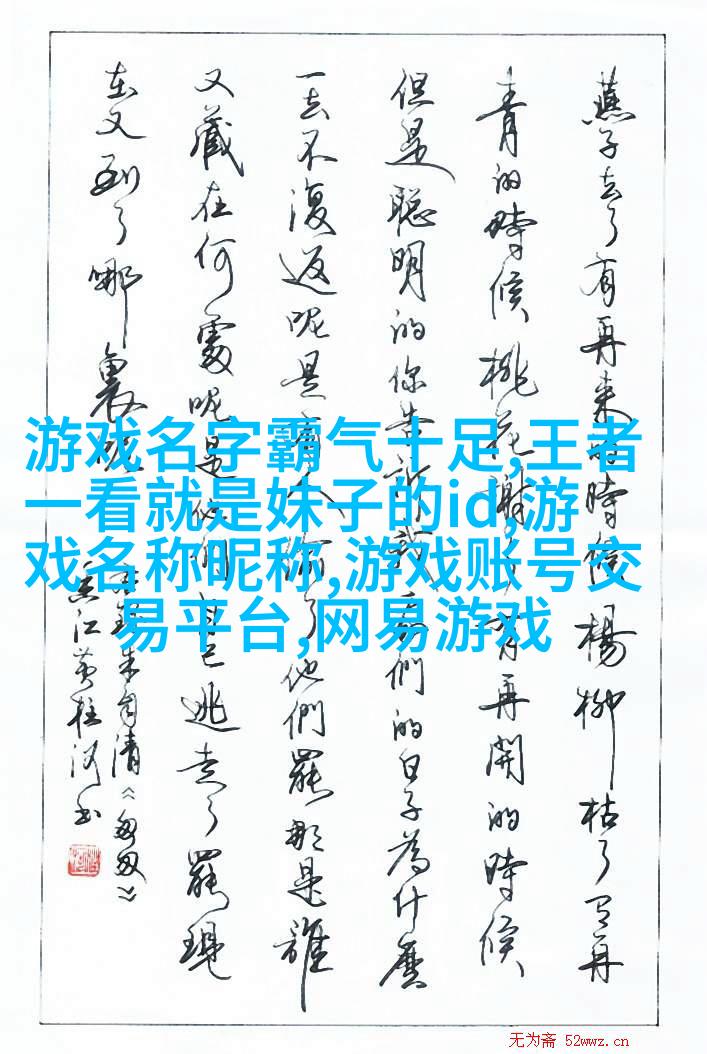 燕子去了有再来的時候楊柳枯了有再
青的時候桃花謝了有再開的時候
但是聪明的你告訴我我們的日子為什麼
一去不復返呢是有人偷了他們罷那是誰
又藏在何處呢是他們自己逃走了罷現
在又到了哪裏呢
朱自清《匆匆》
江黄柱河书
游戏名字霸气十足,王者
一看就是妹子的id,游
戏名称昵称,游戏账号交
易平台,网易游戏
无为斋 52wwz.cn